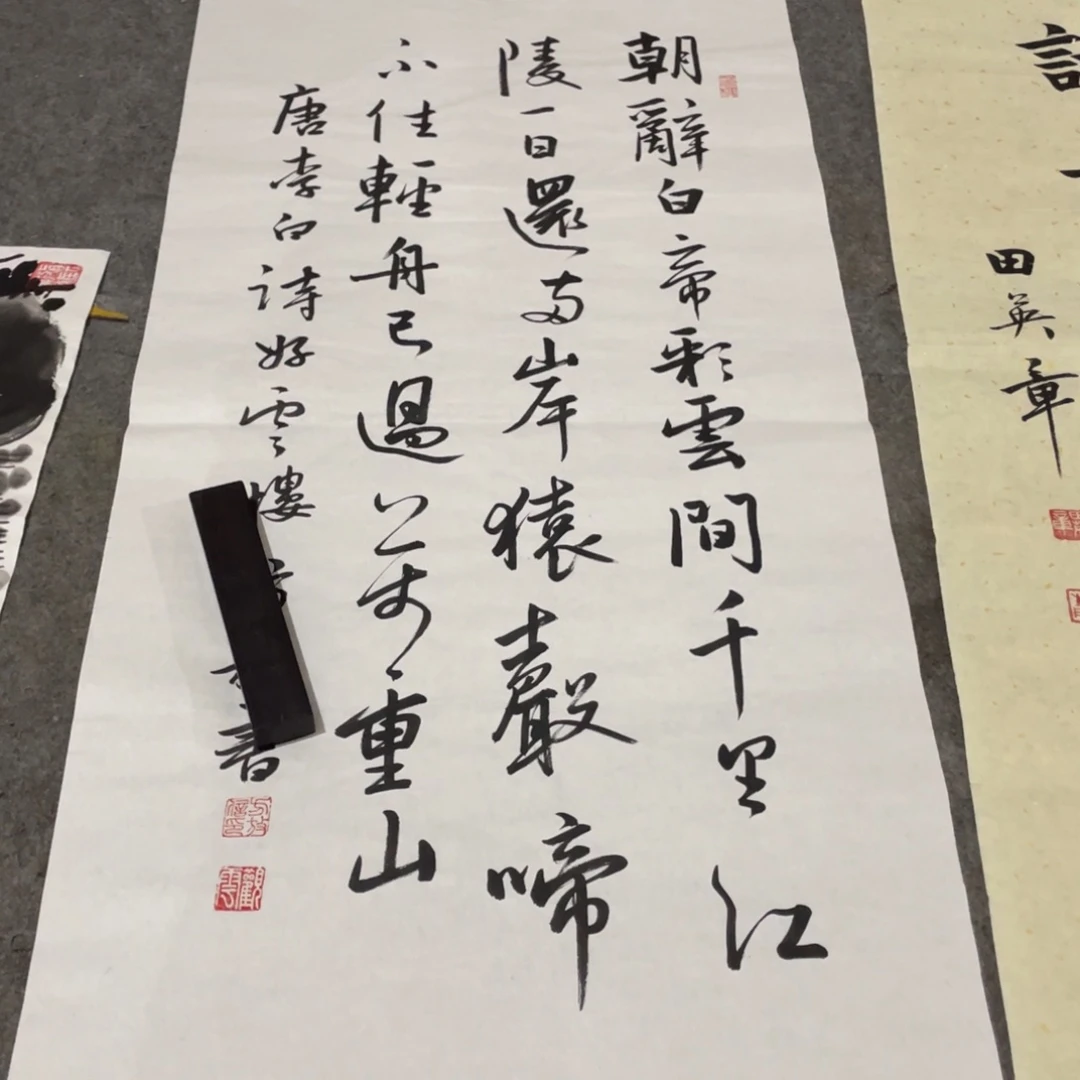 朝辭白帝彩雲間千里江
陵一日還兩岸猿聲啼
不住輕舟已過萬重山
唐李白詩好雲樓
書
田英章